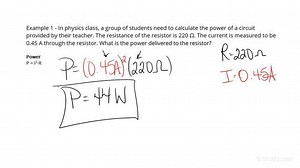 Example 1 - In physics class, a group of students need to calculate the power of a circuit
provided by their teacher. The resistance of the resistor is 220 Ω. The current is measured to be
0.45 A through the resistor. What is the power delivered to the resistor?
Power
P = I²R
P=(0.45A)²(220Ω)
P=44W
R=220Ω
I=0.45A